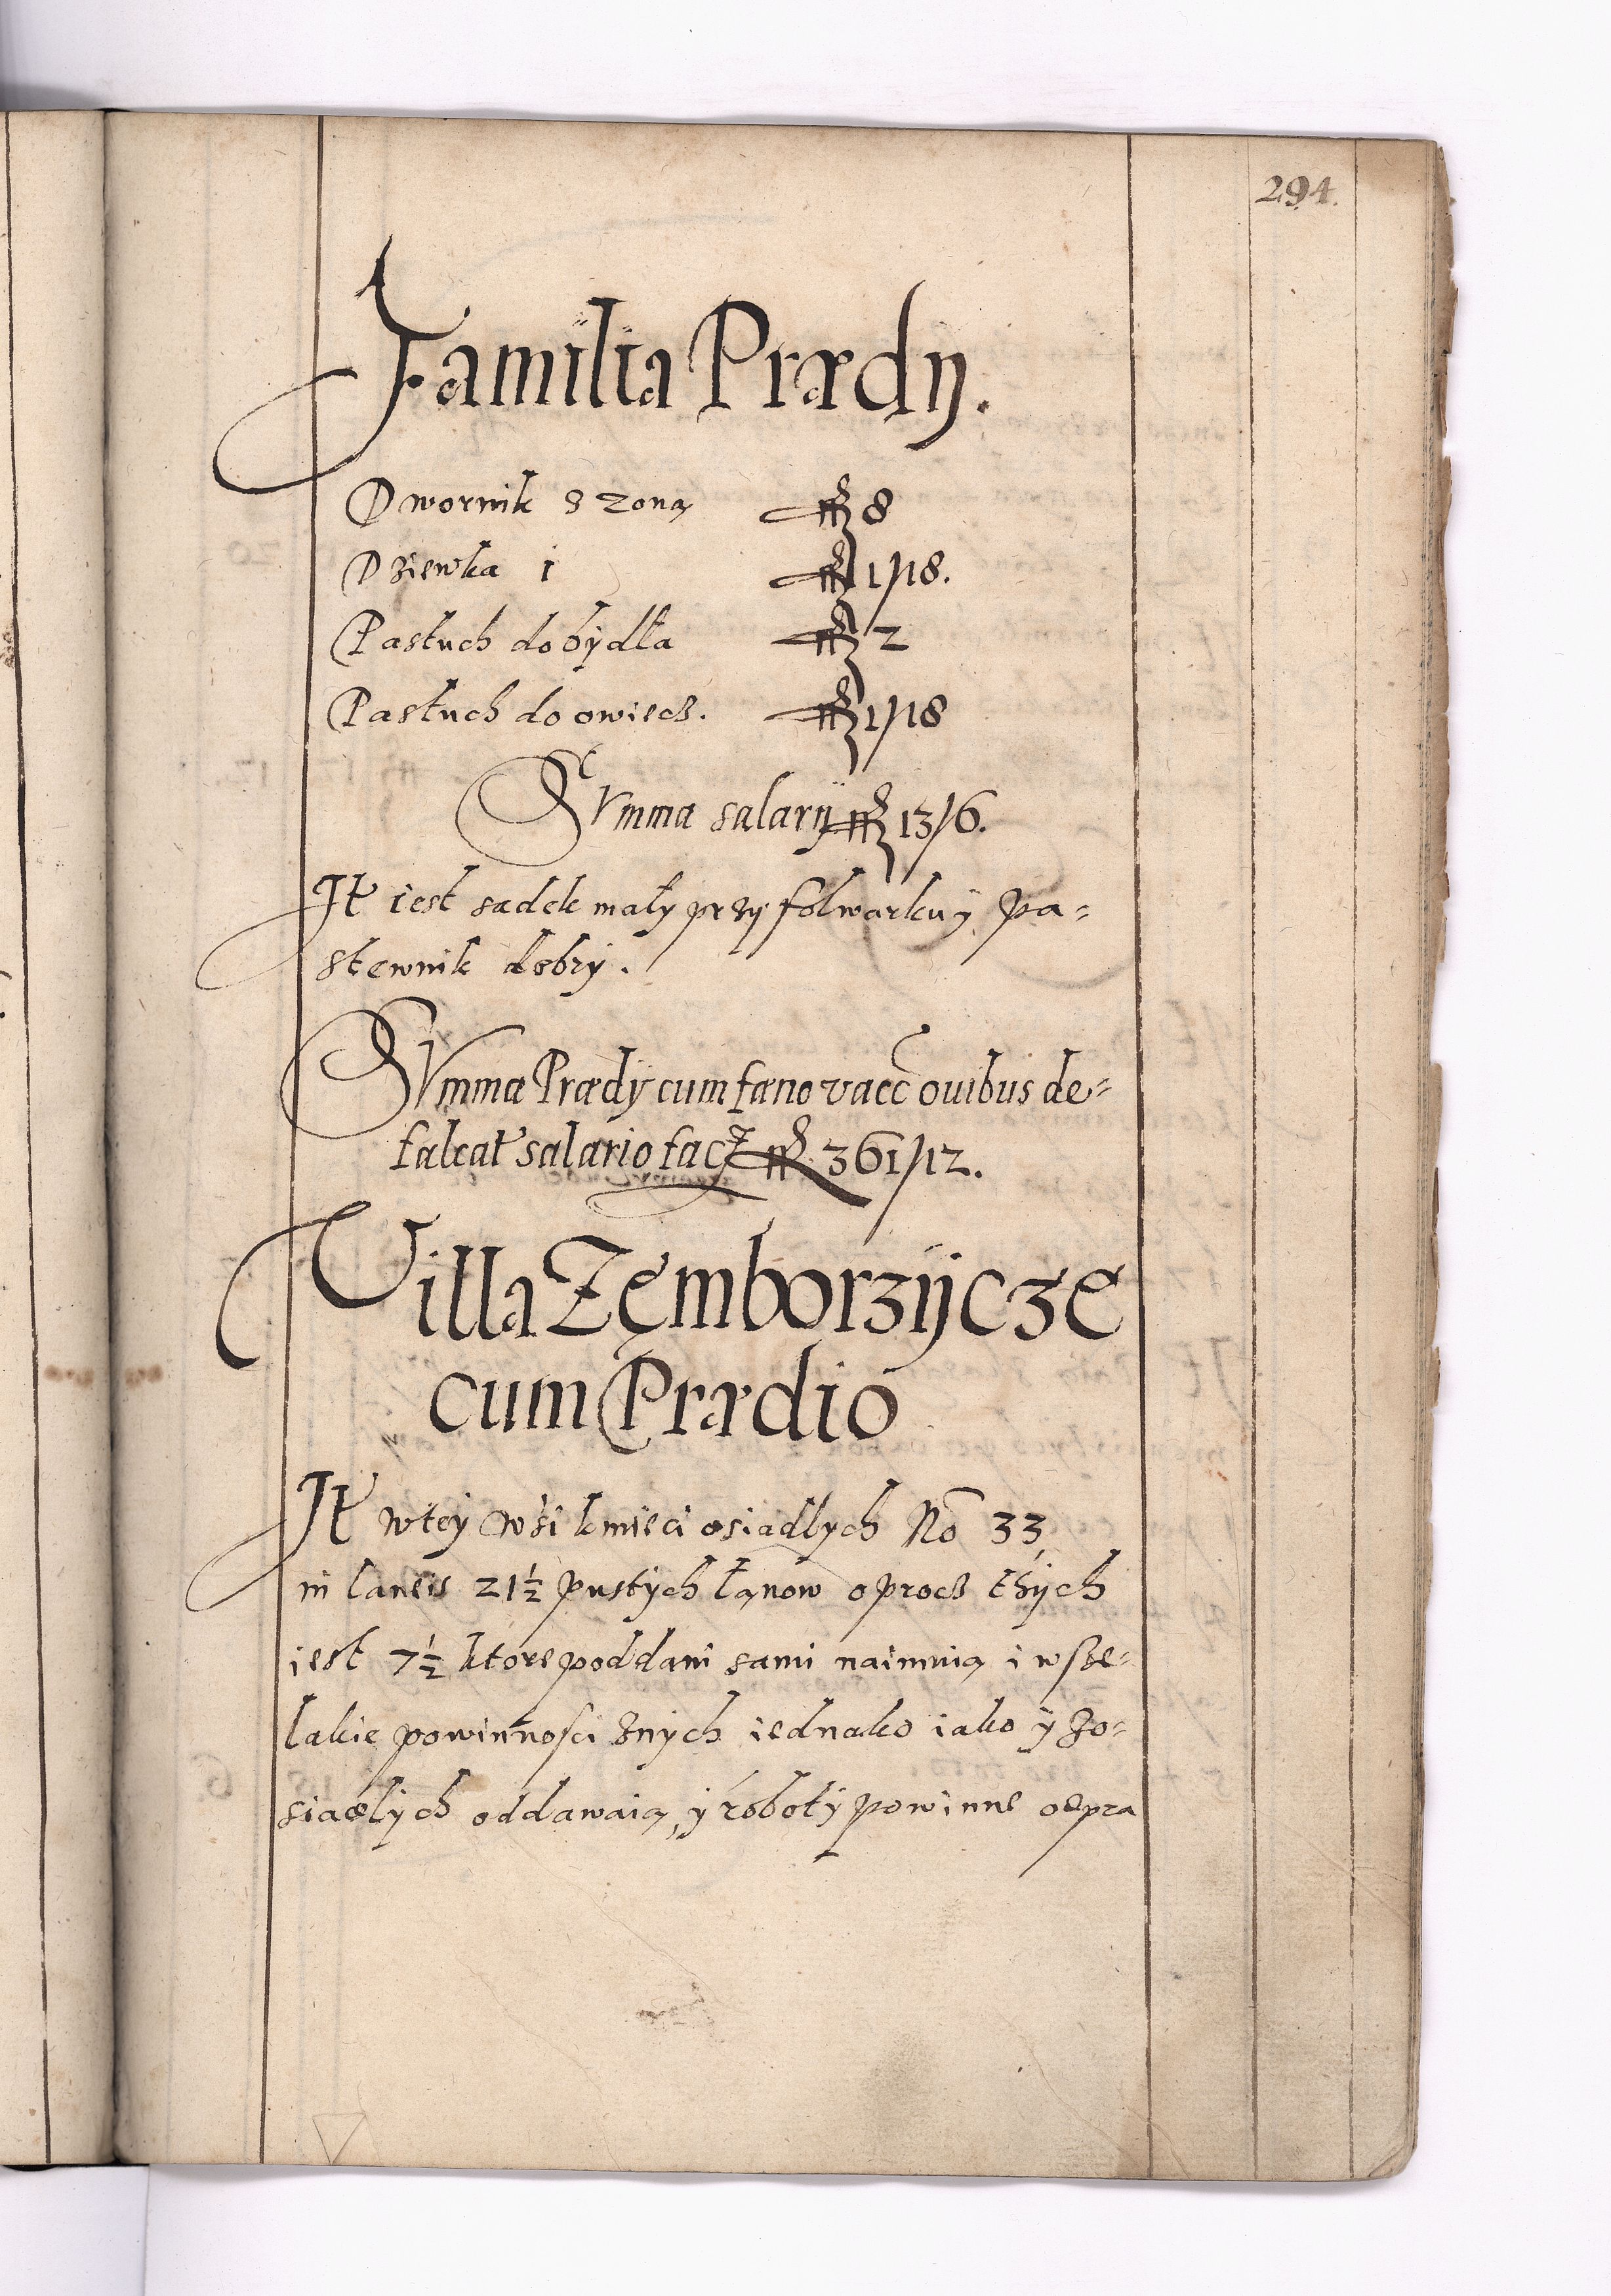 294.
Familia Prædÿ.
Dwornik s zoną ff 8
Dziewka i ff 1/18.
Pastuch do bÿdła ff 2
Pastuch do owiecz. ff 1/18
SVmma salarÿ ff 13/6.
It iest sadek małÿ przÿ folwarku ÿ pa=
stewnik dobrÿ.
SVmma Prædÿ cum fæno vacc ouibus de=
falcat salario facz ff 361/12.
Villa Zęmborzÿcze
cum Prædio
It wteÿ wśi kmieci osiadłÿch No 33,
in laneis 21½ pustÿch łanow oprocz thÿch
iest 7½ ktore poddani sami naimuią i wsze=
lakie powinności znÿch iednako iako ÿ zo=
siadłÿch oddawaią, ÿ robotÿ powinne odpra